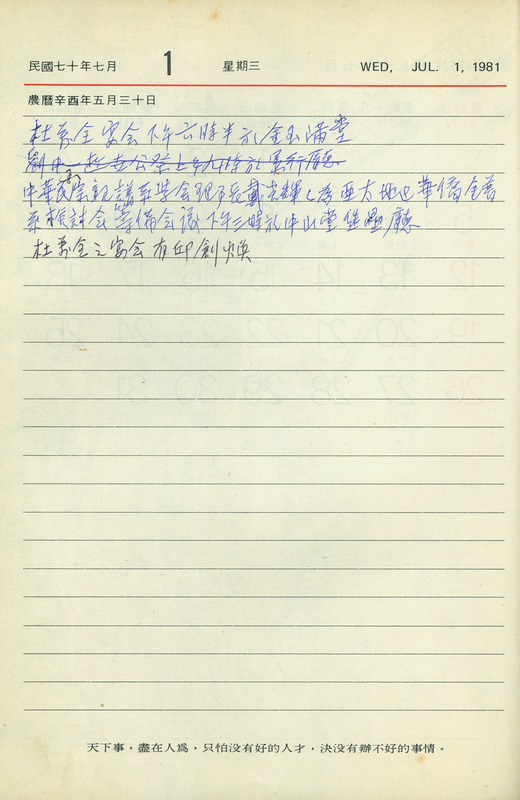 民國七十年七月 1 星期三 WED, JUL. 1, 1981
農曆辛酉年五月三十日
杜萬全宴会下午六時半於金玉滿堂
公祭上午九時於景行廳
中華民 宗親譜系学会理事長戴炎輝 為亞太地 華僑金
系 討会籌備会議下午三時於中山堂堡壘廳
杜萬全之宴会有邱創煥
天下事，盡在人爲，只怕沒有好的人才，決沒有辦不好的事情。